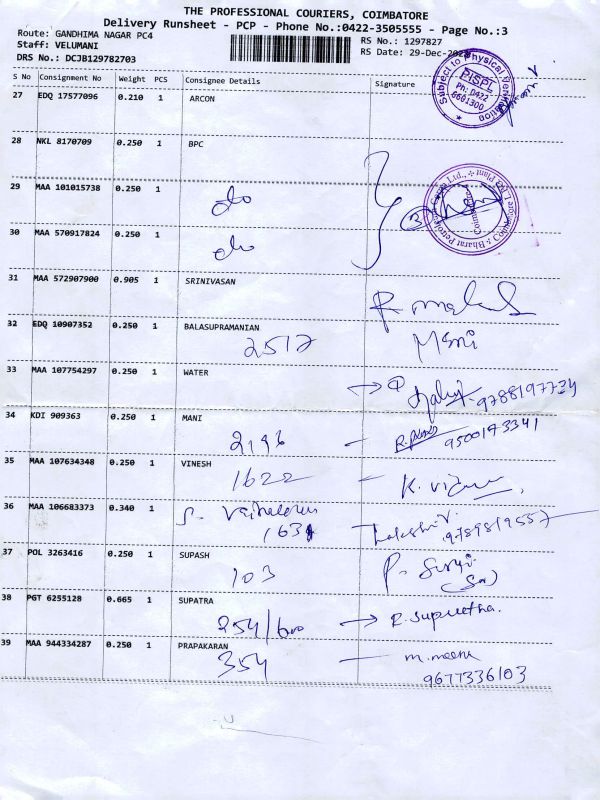 THE PROFESSIONAL COURIERS, COIMBATORE
Delivery Runsheet - PCP - Phone No.:0422-3505555 - Page No.:3
Route: GANDHIMA NAGAR PC4
RS No.: 1297827
Staff: VELUMANI
RS Date: 29-Dec-202
DRS No.: DCJB129782703
S No Consignment No Weight PCS Consignee Details Signature
Subject to Physical Verification
PISPL
Ph: 0422
6601300
27 EDQ 17577096 0.210 1 ARCON
28 NKL 8170709 0.250 1 BPC
29 MAA 101015738 0.250 1
do
Bharat Petroleum
30 MAA 570917824 0.250 1
do
31 MAA 572907900 0.905 1 SRINIVASAN
32 EDQ 10907352 0.250 1 BALASUPRAMANIAN
2517 Mani
33 MAA 107754297 0.250 1 WATER
9788197734
34 KDI 909363 0.250 1 MANI
2193 9500193341
35 MAA 107634348 0.250 1 VINESH
1622 K.
36 MAA 106683373 0.340 1
1631 9789819557
37 POL 3263416 0.250 1 SUPASH
103 P.
38 PGT 6255128 0.665 1 SUPATRA
254/600 R. Supreetha.
39 MAA 944334287 0.250 1 PRAPAKARAN
354 m. meena
9677336103